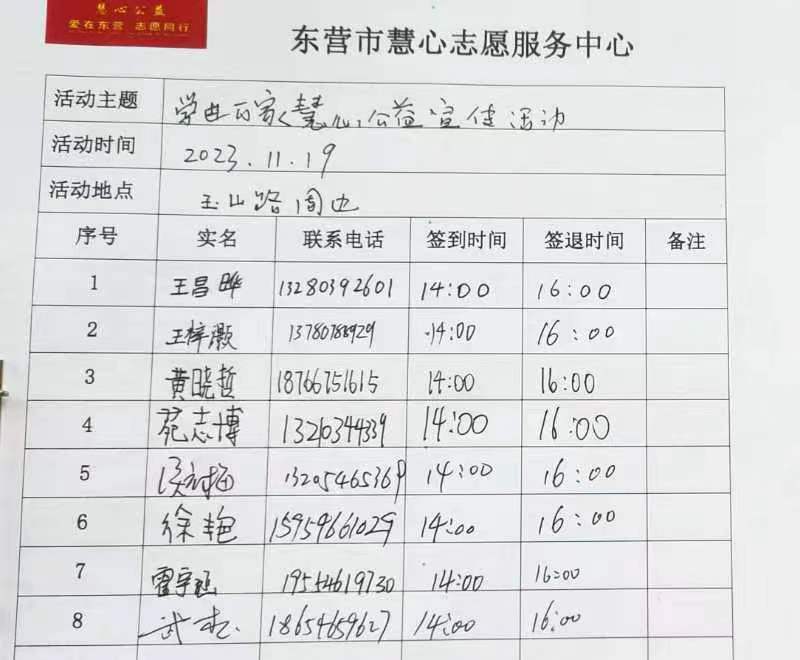 慧心公益
爱在东营 志愿同行
东营市慧心志愿服务中心
活动主题 学进百家〈慧心〉公益宣传活动
活动时间 2023.11.19
活动地点 玉山路周边
序号 实名 联系电话 签到时间 签退时间 备注
1 王昌晔 13280392601 14:00 16:00
2 王梓灏 13780788929 14:00 16:00
3 黄晓哲 18766751615 14:00 16:00
4 苑志博 1326344339 14:00 16:00
5 13205465369 14:00 16:00
6 徐艳 15959661029 14:00 16:00
7 霍宇 19554619730 14:00 16:00
8 武松 18654659627 14:00 16:00